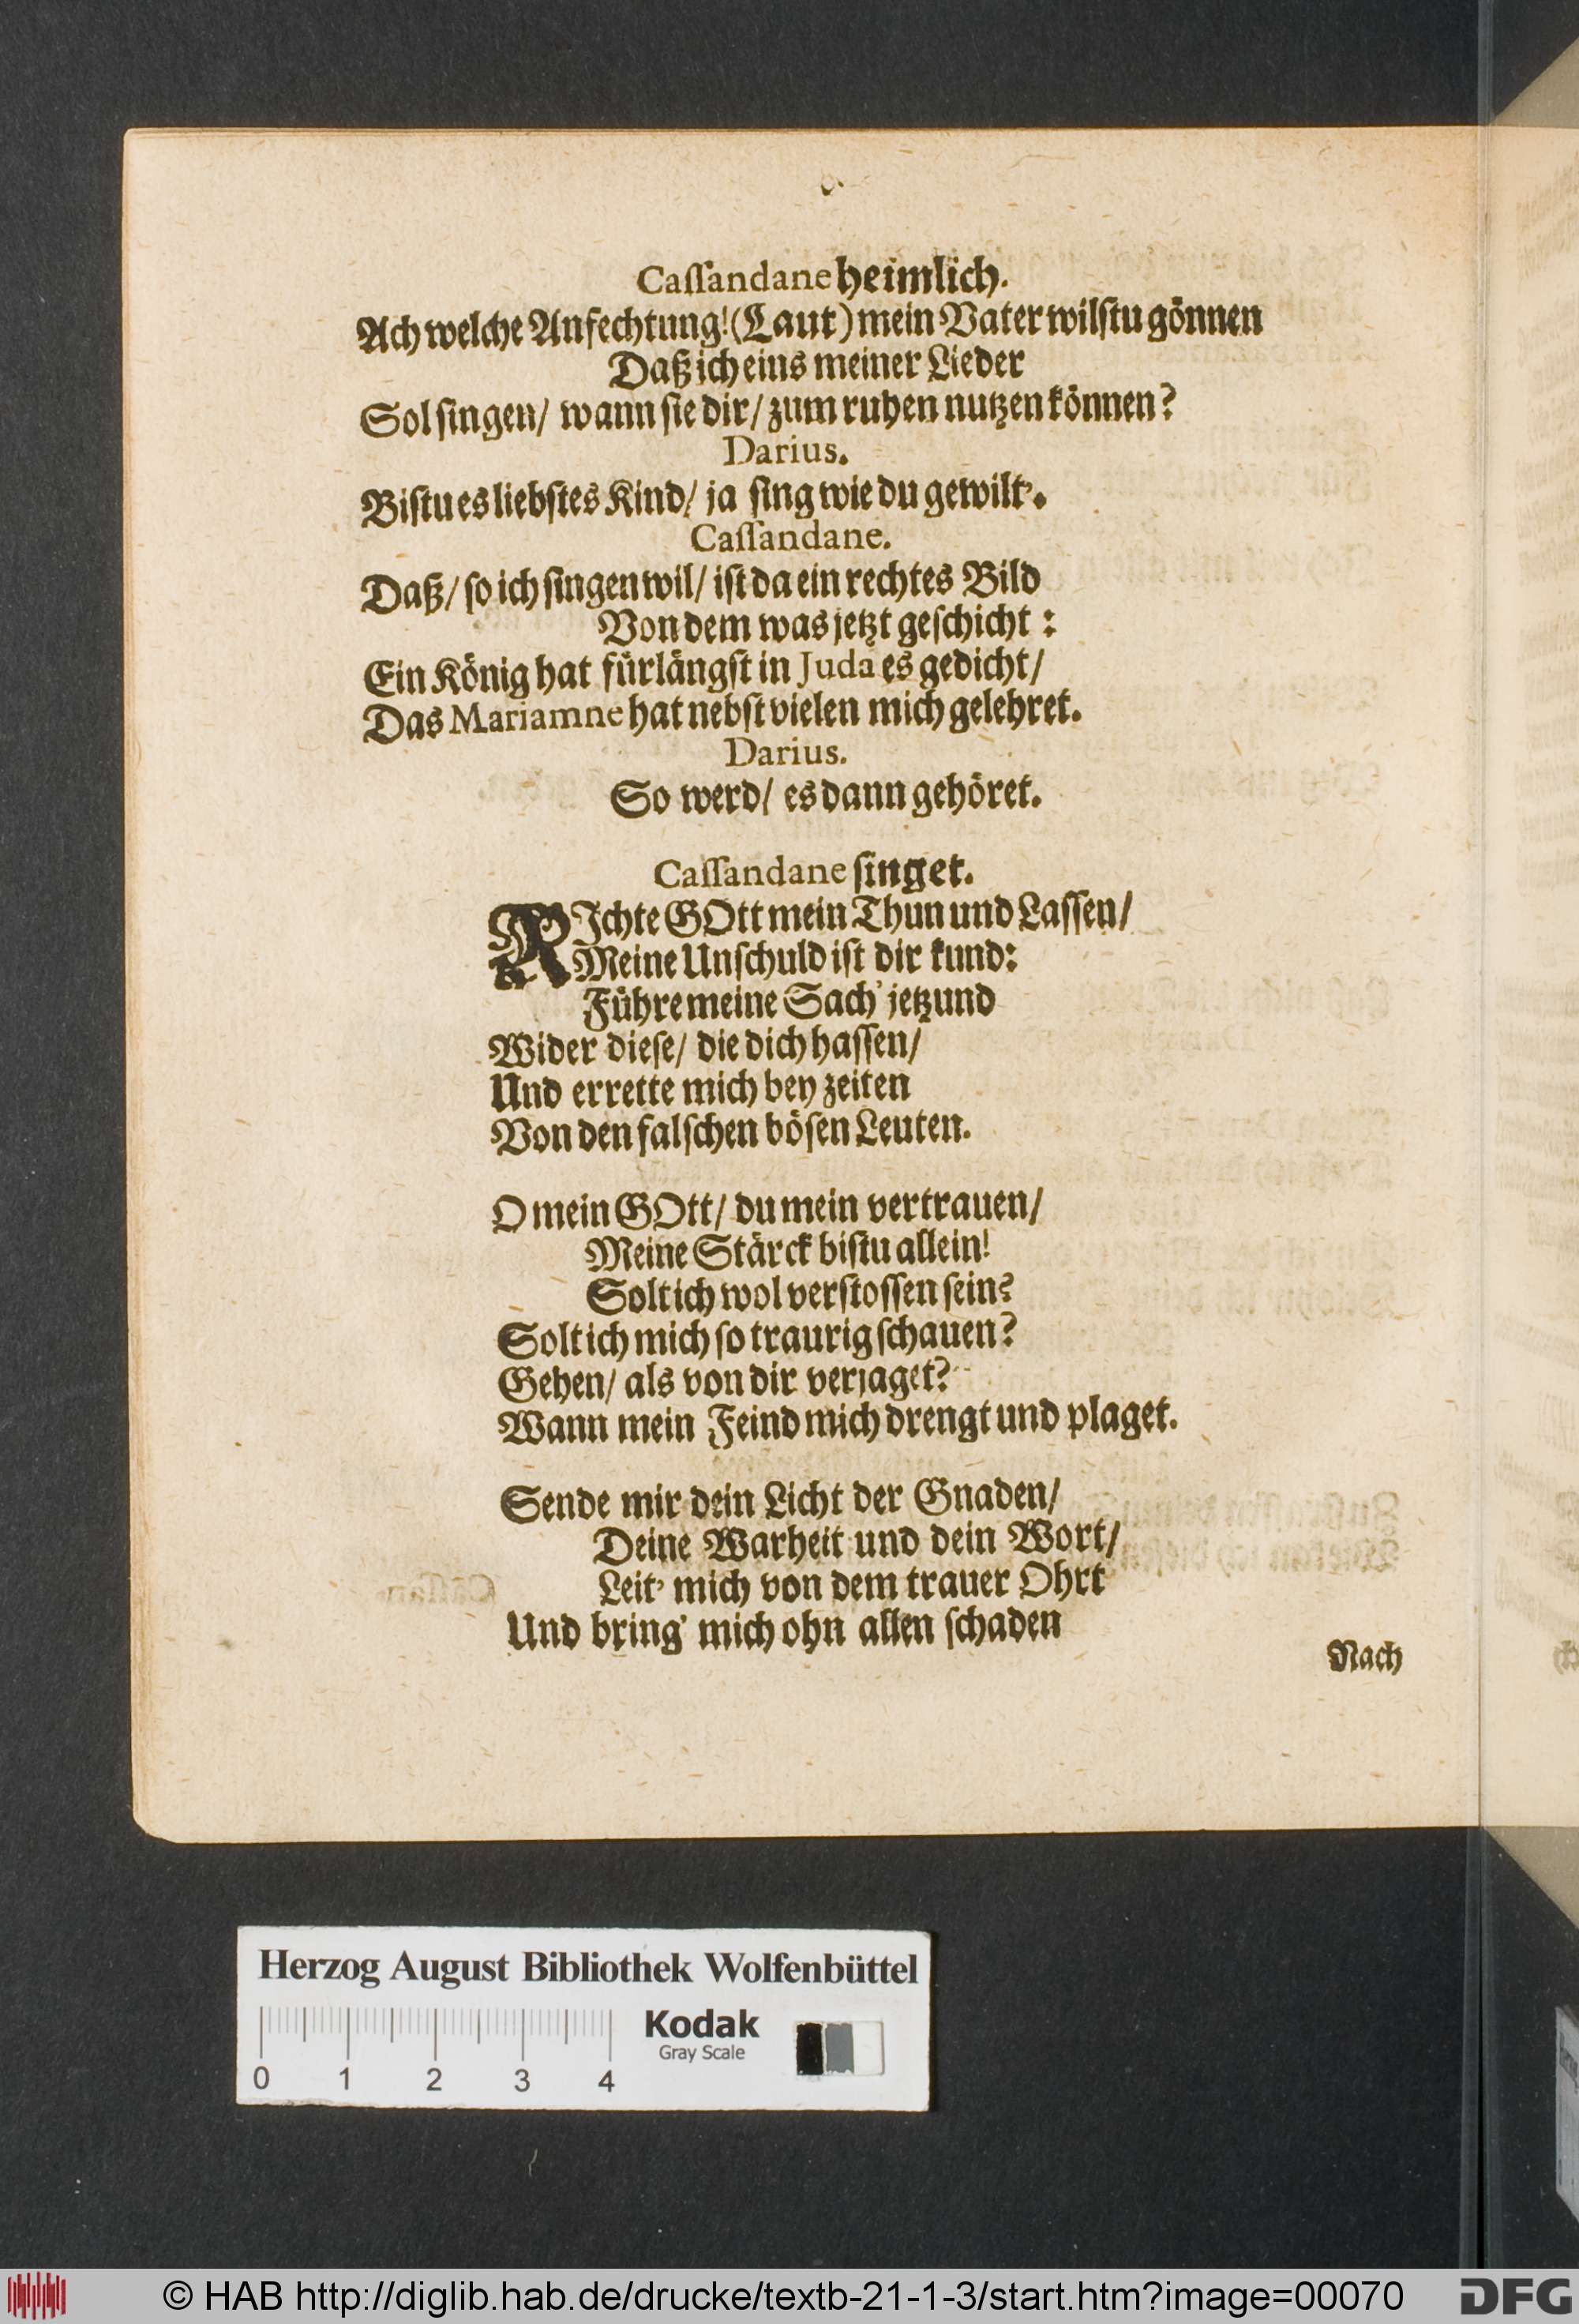 Caſſandane heimlich.
Ach welche Anfechtung! (Laut) mein Vater wilſtu gönnen
Daß ich eins meiner Lieder
Sol ſingen/ wann ſie dir/ zum ruhen nutzen können?
Darius.
Biſtu es liebſtes Kind/ ja ſing wie du gewilt'.
Caſſandane.
Daß/ ſo ich ſingen wil/ iſt da ein rechtes Bild
Von dem was jetzt geſchicht:
Ein König hat fürlängſt in Juda es gedicht/
Das Mariamne hat nebſt vielen mich gelehret.
Darius.
So werd/ es dann gehöret.
Caſſandane ſinget.
RIchte GOtt mein Thun und Laſſen/
Meine Unſchuld iſt dir kund:
Führe meine Sach' jetzund
Wider dieſe/ die dich haſſen/
Und errette mich bey zeiten
Von den falſchen böſen Leuten.
O mein GOtt/ du mein vertrauen/
Meine Stärck biſtu allein!
Solt ich wol verſtoſſen ſein?
Solt ich mich ſo traurig ſchauen?
Gehen/ als von dir verjaget?
Wann mein Feind mich drengt und plaget.
Sende mir dein Licht der Gnaden/
Deine Warheit und dein Wort/
Leit' mich von dem trauer Ohrt
Und bring' mich ohn allen ſchaden
Nach
Herzog August Bibliothek Wolfenbüttel
Kodak
Gray Scale
0 1 2 3 4
© HAB http://diglib.hab.de/drucke/textb-21-1-3/start.htm?image=00070
DFG